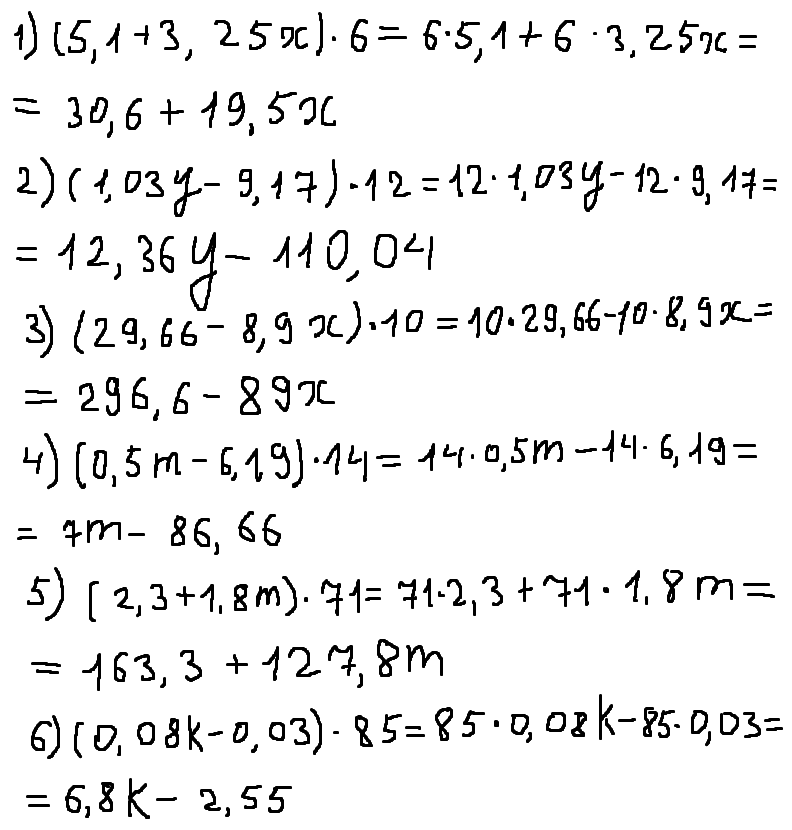 1) (5,1+3, 25x)·6=6·5,1+6·3,25x=
= 30,6+19,5x
2) (1,03y-9,17)·12=12·1,03y-12·9,17=
= 12,36y-110,04
3) (29,66-8,9x)·10=10·29,66-10·8,9x=
= 296,6-89x
4) (0,5m-6,19)·14=14·0,5m-14·6,19=
= 7m-86,66
5) (2,3+1,8m)·71=71·2,3+71·1,8m=
= 163,3+127,8m
6) (0,08k-0,03)·85=85·0,08k-85·0,03=
= 6,8k-2,55